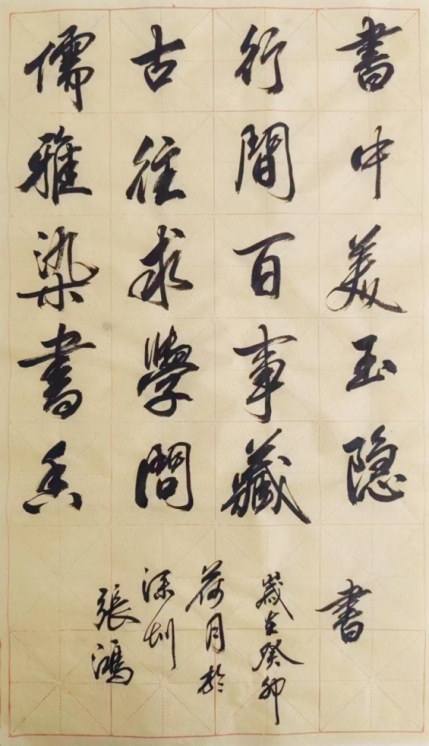 書中美玉隐
行間百事藏
古往求學問
儒雅染書香
書
歲在癸卯
荷月於
深圳
張鴻